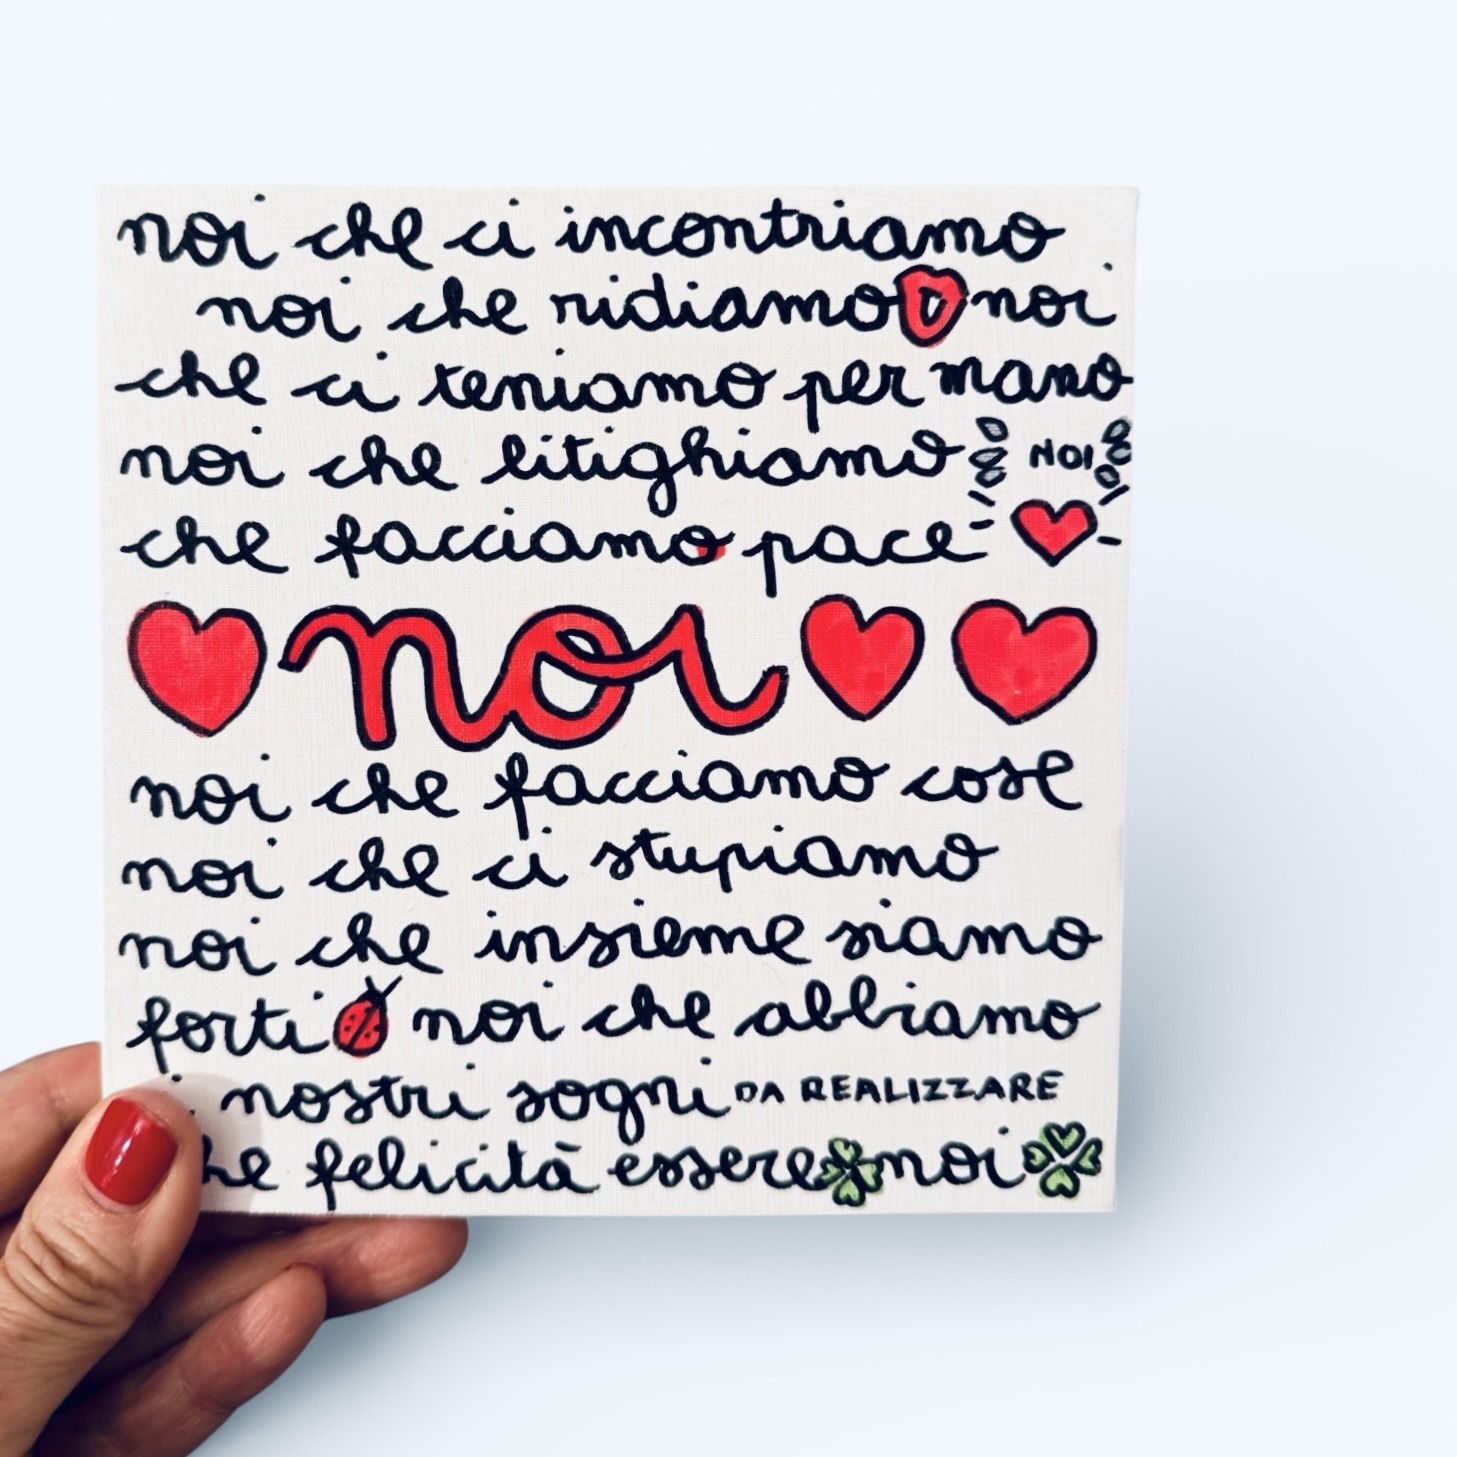 noi che ci incontriamo
noi che ridiamo noi
che ci teniamo per mano
noi che litighiamo NOI
che facciamo pace
noi
noi che facciamo cose
noi che ci stupiamo
noi che insieme siamo
forti noi che abbiamo
i nostri sogni DA REALIZZARE
che felicità essere noi